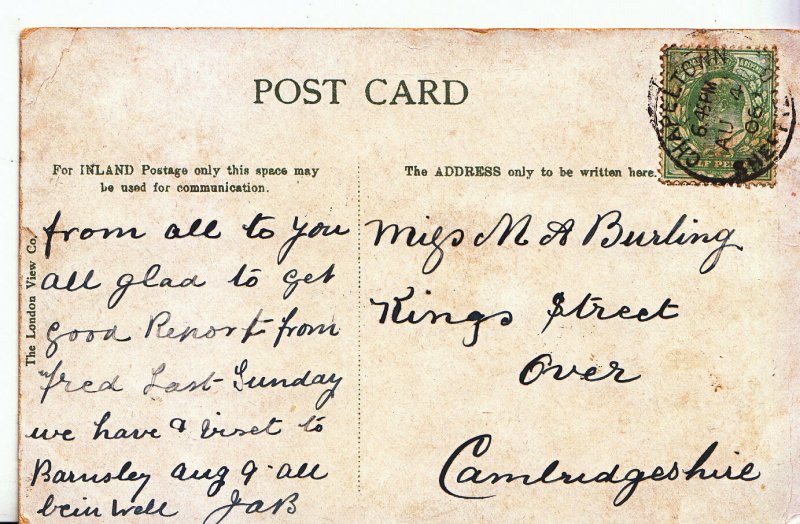 POST CARD
For INLAND Postage only this space may
be used for communication.
The ADDRESS only to be written here.
CHAPELTOWN
6.45PM
AU 4
06
SHEFFIELD
HALF PENNY
The London View Co.
from all to you
all glad to get
good Report from
fred Last Sunday
we have a viset to
Barnsley aug 9 all
bein well JaB
Miss M A Burling
Kings Street
Over
Cambridgeshire